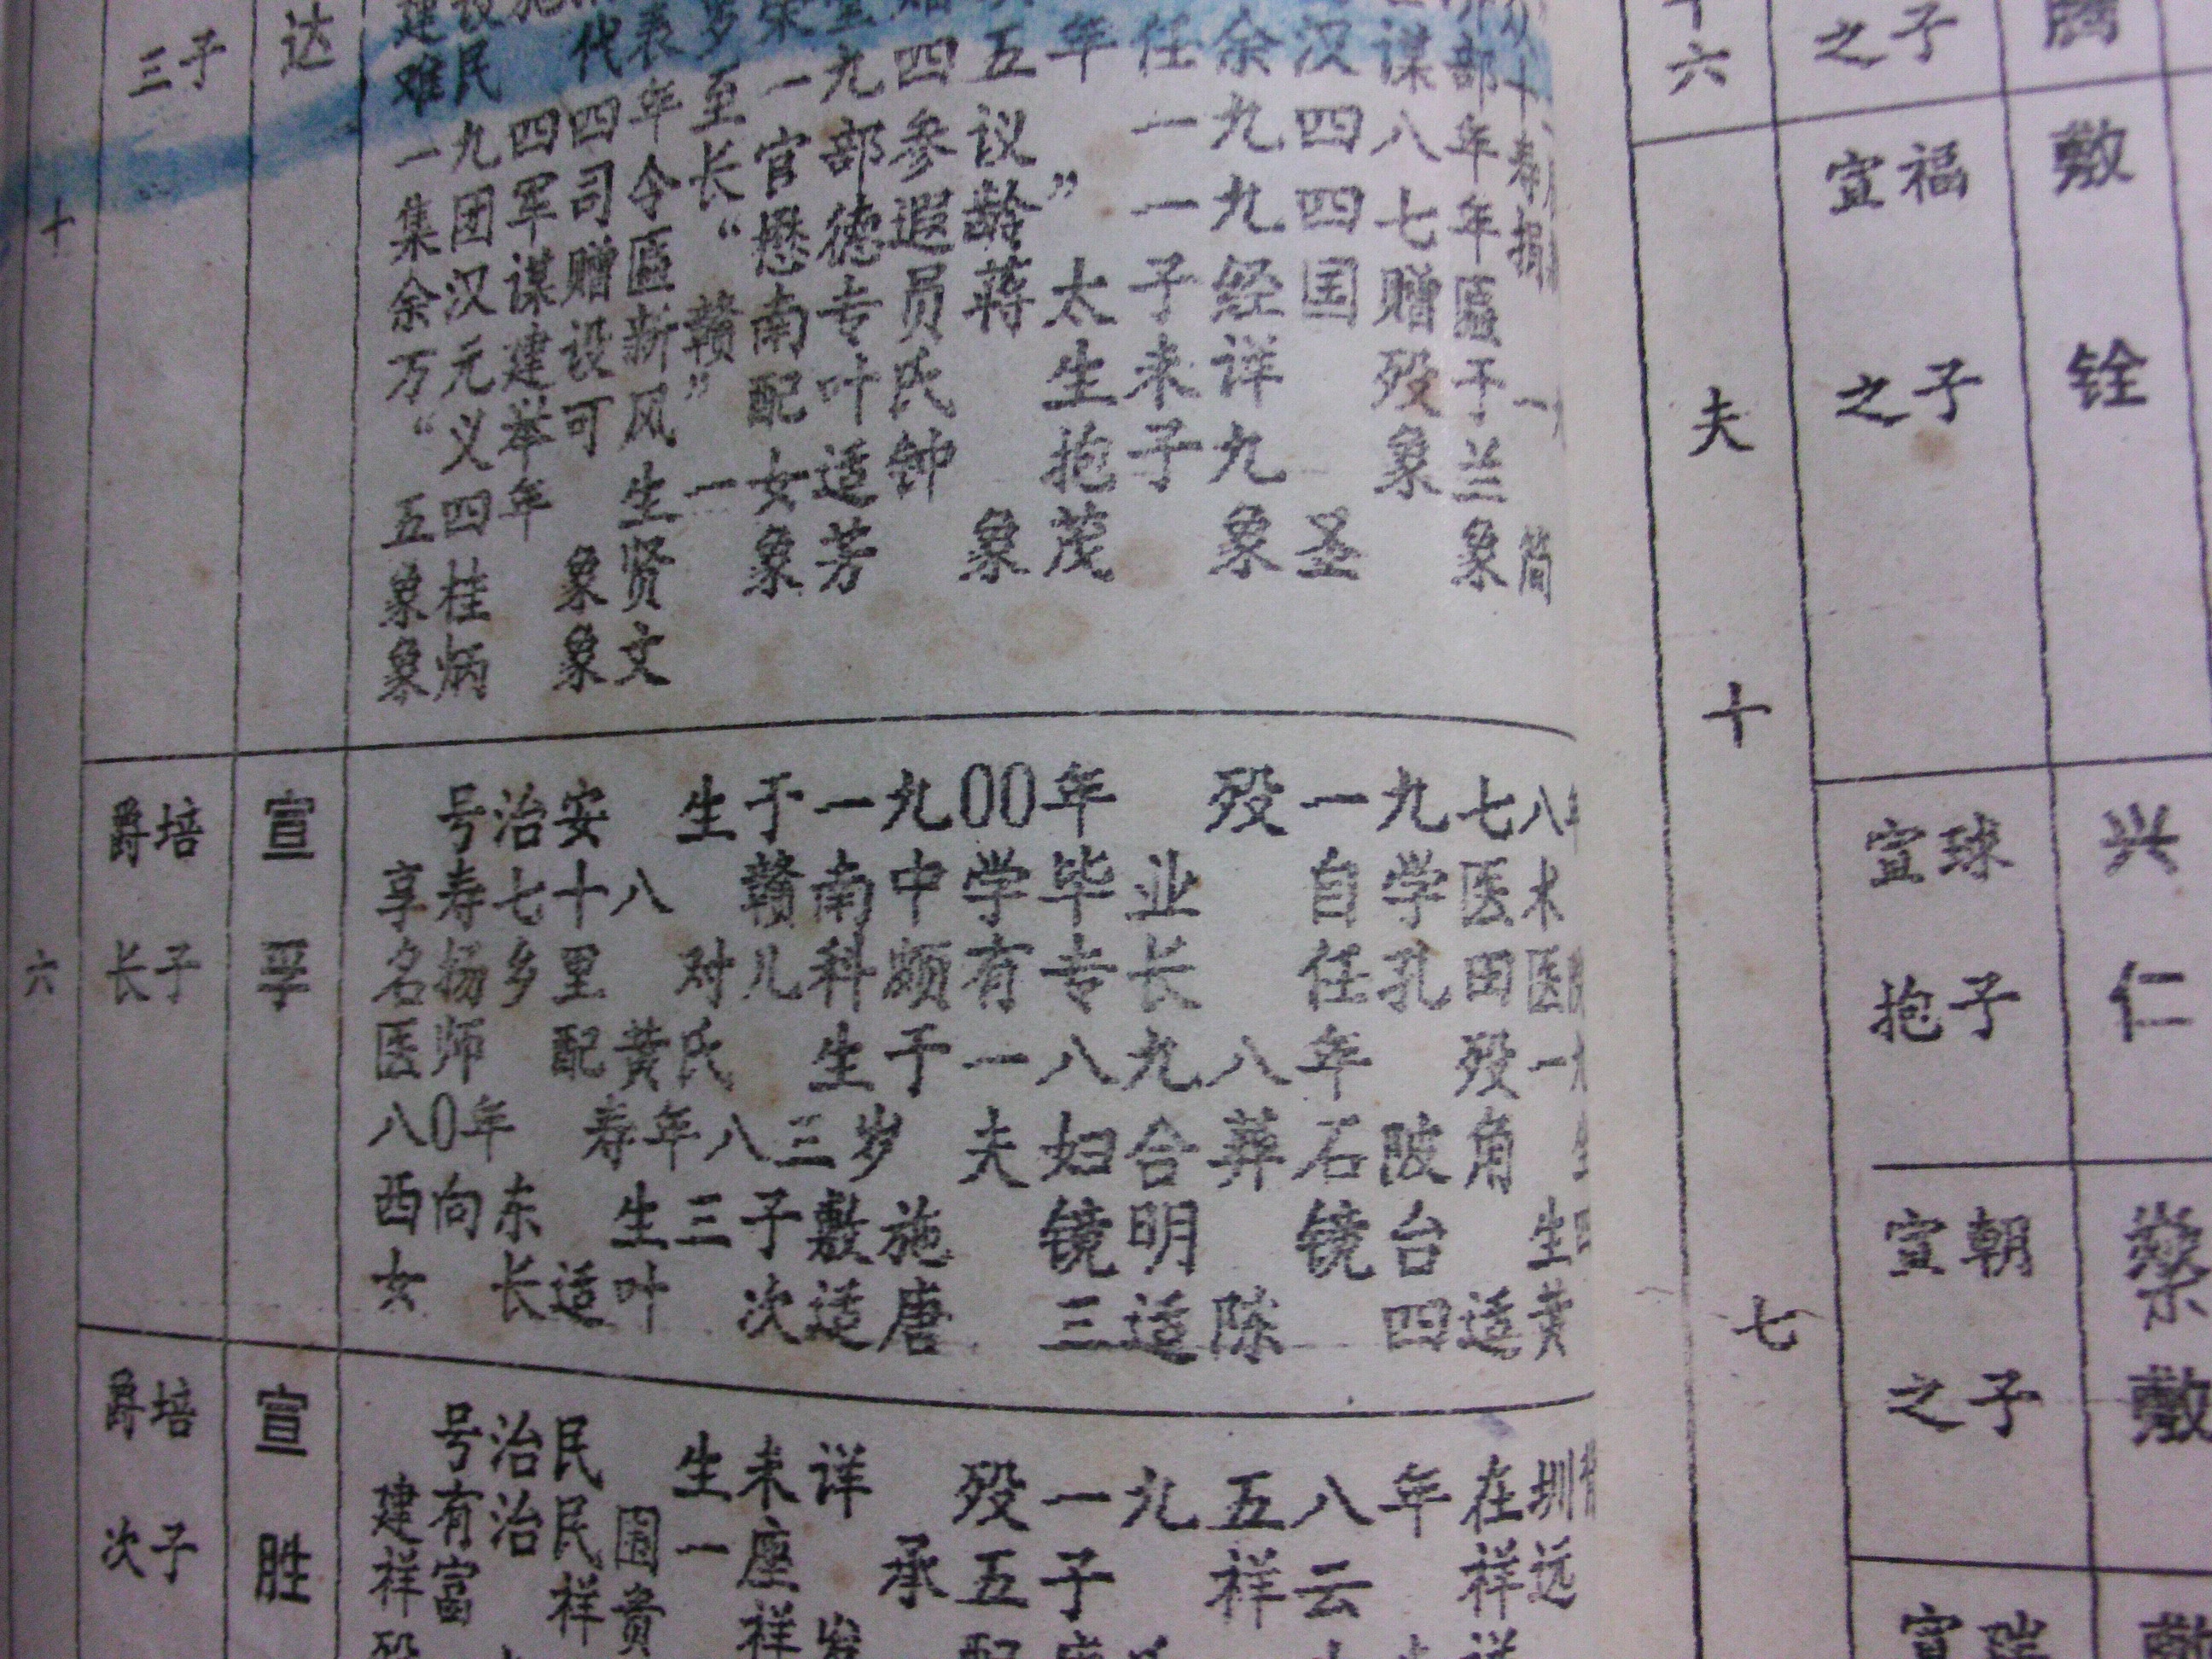 三子
达
难民
一九四四年至一九四五年任余汉谋部
集团军司令长官部参议 一九四八年寿
余汉谋赠匾“懋德遐龄” 一九四七年捐
万元建设新赣南 专员蒋太子经国赠匾
“义举可风” 配叶氏 生未详 殁于一
五四年 生一女适钟 抱子九 象兰
象桂 象贤 象芳 象茂 象圣 象简
象炳 象文
十
六
爵培
长子
宣孚
号治安 生于一九00年 殁一九七八年
享寿七十八 赣南中学毕业 自学医术
名扬乡里 对儿科颇有专长 任孔田医
医师 配黄氏 生于一八九八年 殁一九
八0年 寿年八三岁 夫妇合葬石陂角
西向东 生三子敷施 镜明 镜台 生四
女 长适叶 次适唐 三适陈 四适黄
爵培
次子
宣胜
号治民 生未详 殁一九五八年在圳
建有治民围一座 承五子 祥云 祥远
祥富 祥贵 祥发
十六
之子
夫
十
七
宣福
之子
敷铨
宣球
抱子
兴仁
宣朝
之子
敷